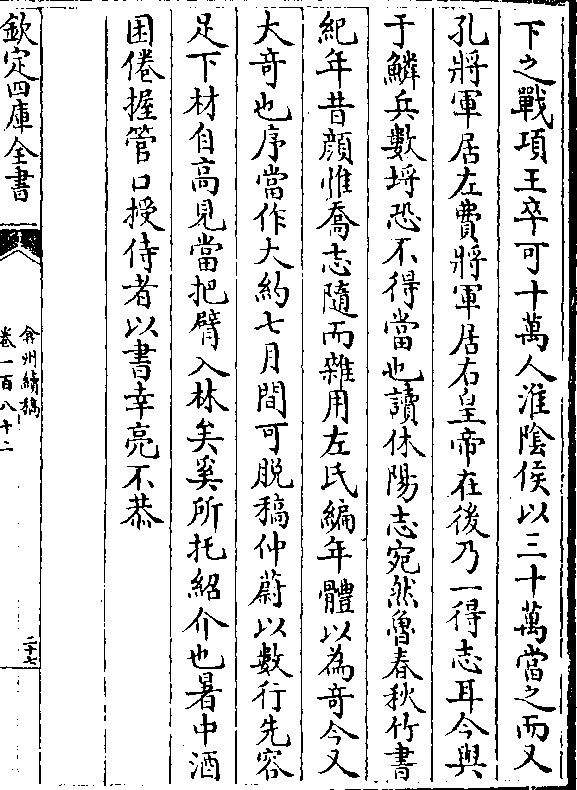 下之戰項王卒可十萬人淮陰侯以三十萬當之而又
孔將軍居左費將軍居右皇帝在後乃一得志耳今與
于鱗兵數埒恐不得當也讀休陽志宛然魯春秋竹書
紀年昔顔惟喬志隨而雜用左氏編年體以為竒今又
大竒也序當作大約七月間可脱稿仲蔚以數行先容
足下材自高見當把臂入林矣奚所托紹介也暑中酒
困倦握管口授侍者以書幸亮不恭
欽定四庫全書
弇州續稿
卷一百八十二
二十七